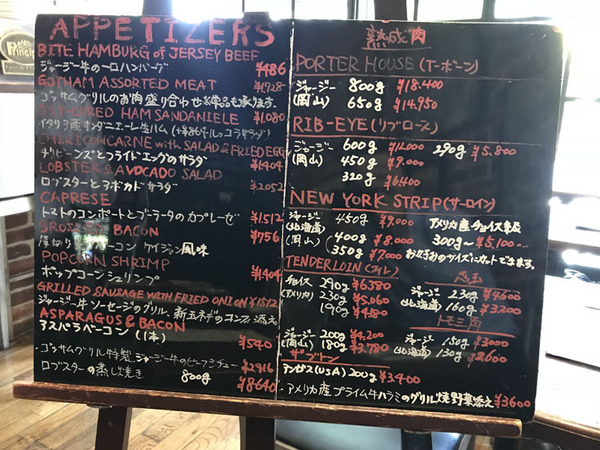 APPETIZERS
BITE HAMBURG of JERSEY BEEF
ジャージー牛の一口ハンバーグ ¥486
GOTHAM ASSORTED MEAT ¥1728
ゴッサムグリルのお肉盛り合わせ
HAM SANDANIELE ¥1080
イタリア産サンダニエーレ生ハム
CHILICONCARNE with SALAD & FRIED EGG
チリビーンズとフライドエッグのサラダ ¥1404
LOBSTER & AVOCADO SALAD
ロブスターとアボカドサラダ ¥2052
CAPRESE
トマトのコンポートとブラータのカプレーゼ ¥1512
BACON ¥756
厚切りベーコン ケイジャン風味
POPCORN SHRIMP
ポップコーンシュリンプ ¥1404
GRILLED SAUSAGE WITH FRIED ONION ¥1512
ジャージー牛ソーセージのグリル、新玉ネギのコンフィ添え
ASPARAGUS & BACON
アスパラベーコン (1本) ¥540
・ゴッサムグリル特製ジャージー牛のビーフシチュー ¥2916
ロブスターの蒸し焼き 800g ¥8640
熟成肉
PORTER HOUSE (Tーボーン)
ジャージー 800g ¥18,400
(岡山) 650g ¥14,950
RIB-EYE (リブロース)
ジャージー 600g ¥12000 290g ¥5,800
(岡山) 450g ¥9,000
320g ¥6400
NEW YORK STRIP (サーロイン)
ジャージー 450g ¥9,000 アメリカ産チョイス
(北海道) 300g〜 ¥5,100〜
(岡山) 400g ¥8,000 お好きのサイズにカットできます。
350g ¥7000
TENDERLOIN (フィレ)
チョイス 290g ¥6380
(アメリカ) 230g ¥5,060 ジャージー 230g ¥4600
190g ¥4180 (北海道) 160g ¥3200
トモ三角
ジャージー 200g ¥4,200 ジャージー 150g ¥3000
(岡山) 180g ¥3,780 (北海道) 130g ¥2600
ザブトン
アンガス(USA) 200g ¥3,400
・アメリカ産プライム牛ハラミのグリル 焼野菜添え ¥3600